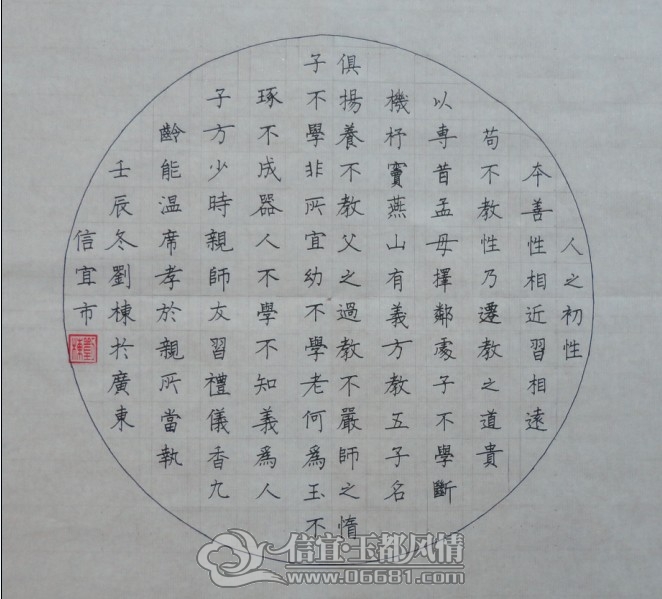 人之初性
本善性相近習相遠
苟不教性乃遷教之道貴
以専昔孟母擇鄰處子不學斷
機杼竇燕山有義方教五子名
俱揚養不教父之過教不嚴師之惰
子不學非所宜幼不學老何為玉不
琢不成器人不學不知義為人
子方少時親師友習禮儀香九
齡能温席孝於親所當執
壬辰冬劉棟於廣東
信宜市
信宜·玉都风情
www.06681.com